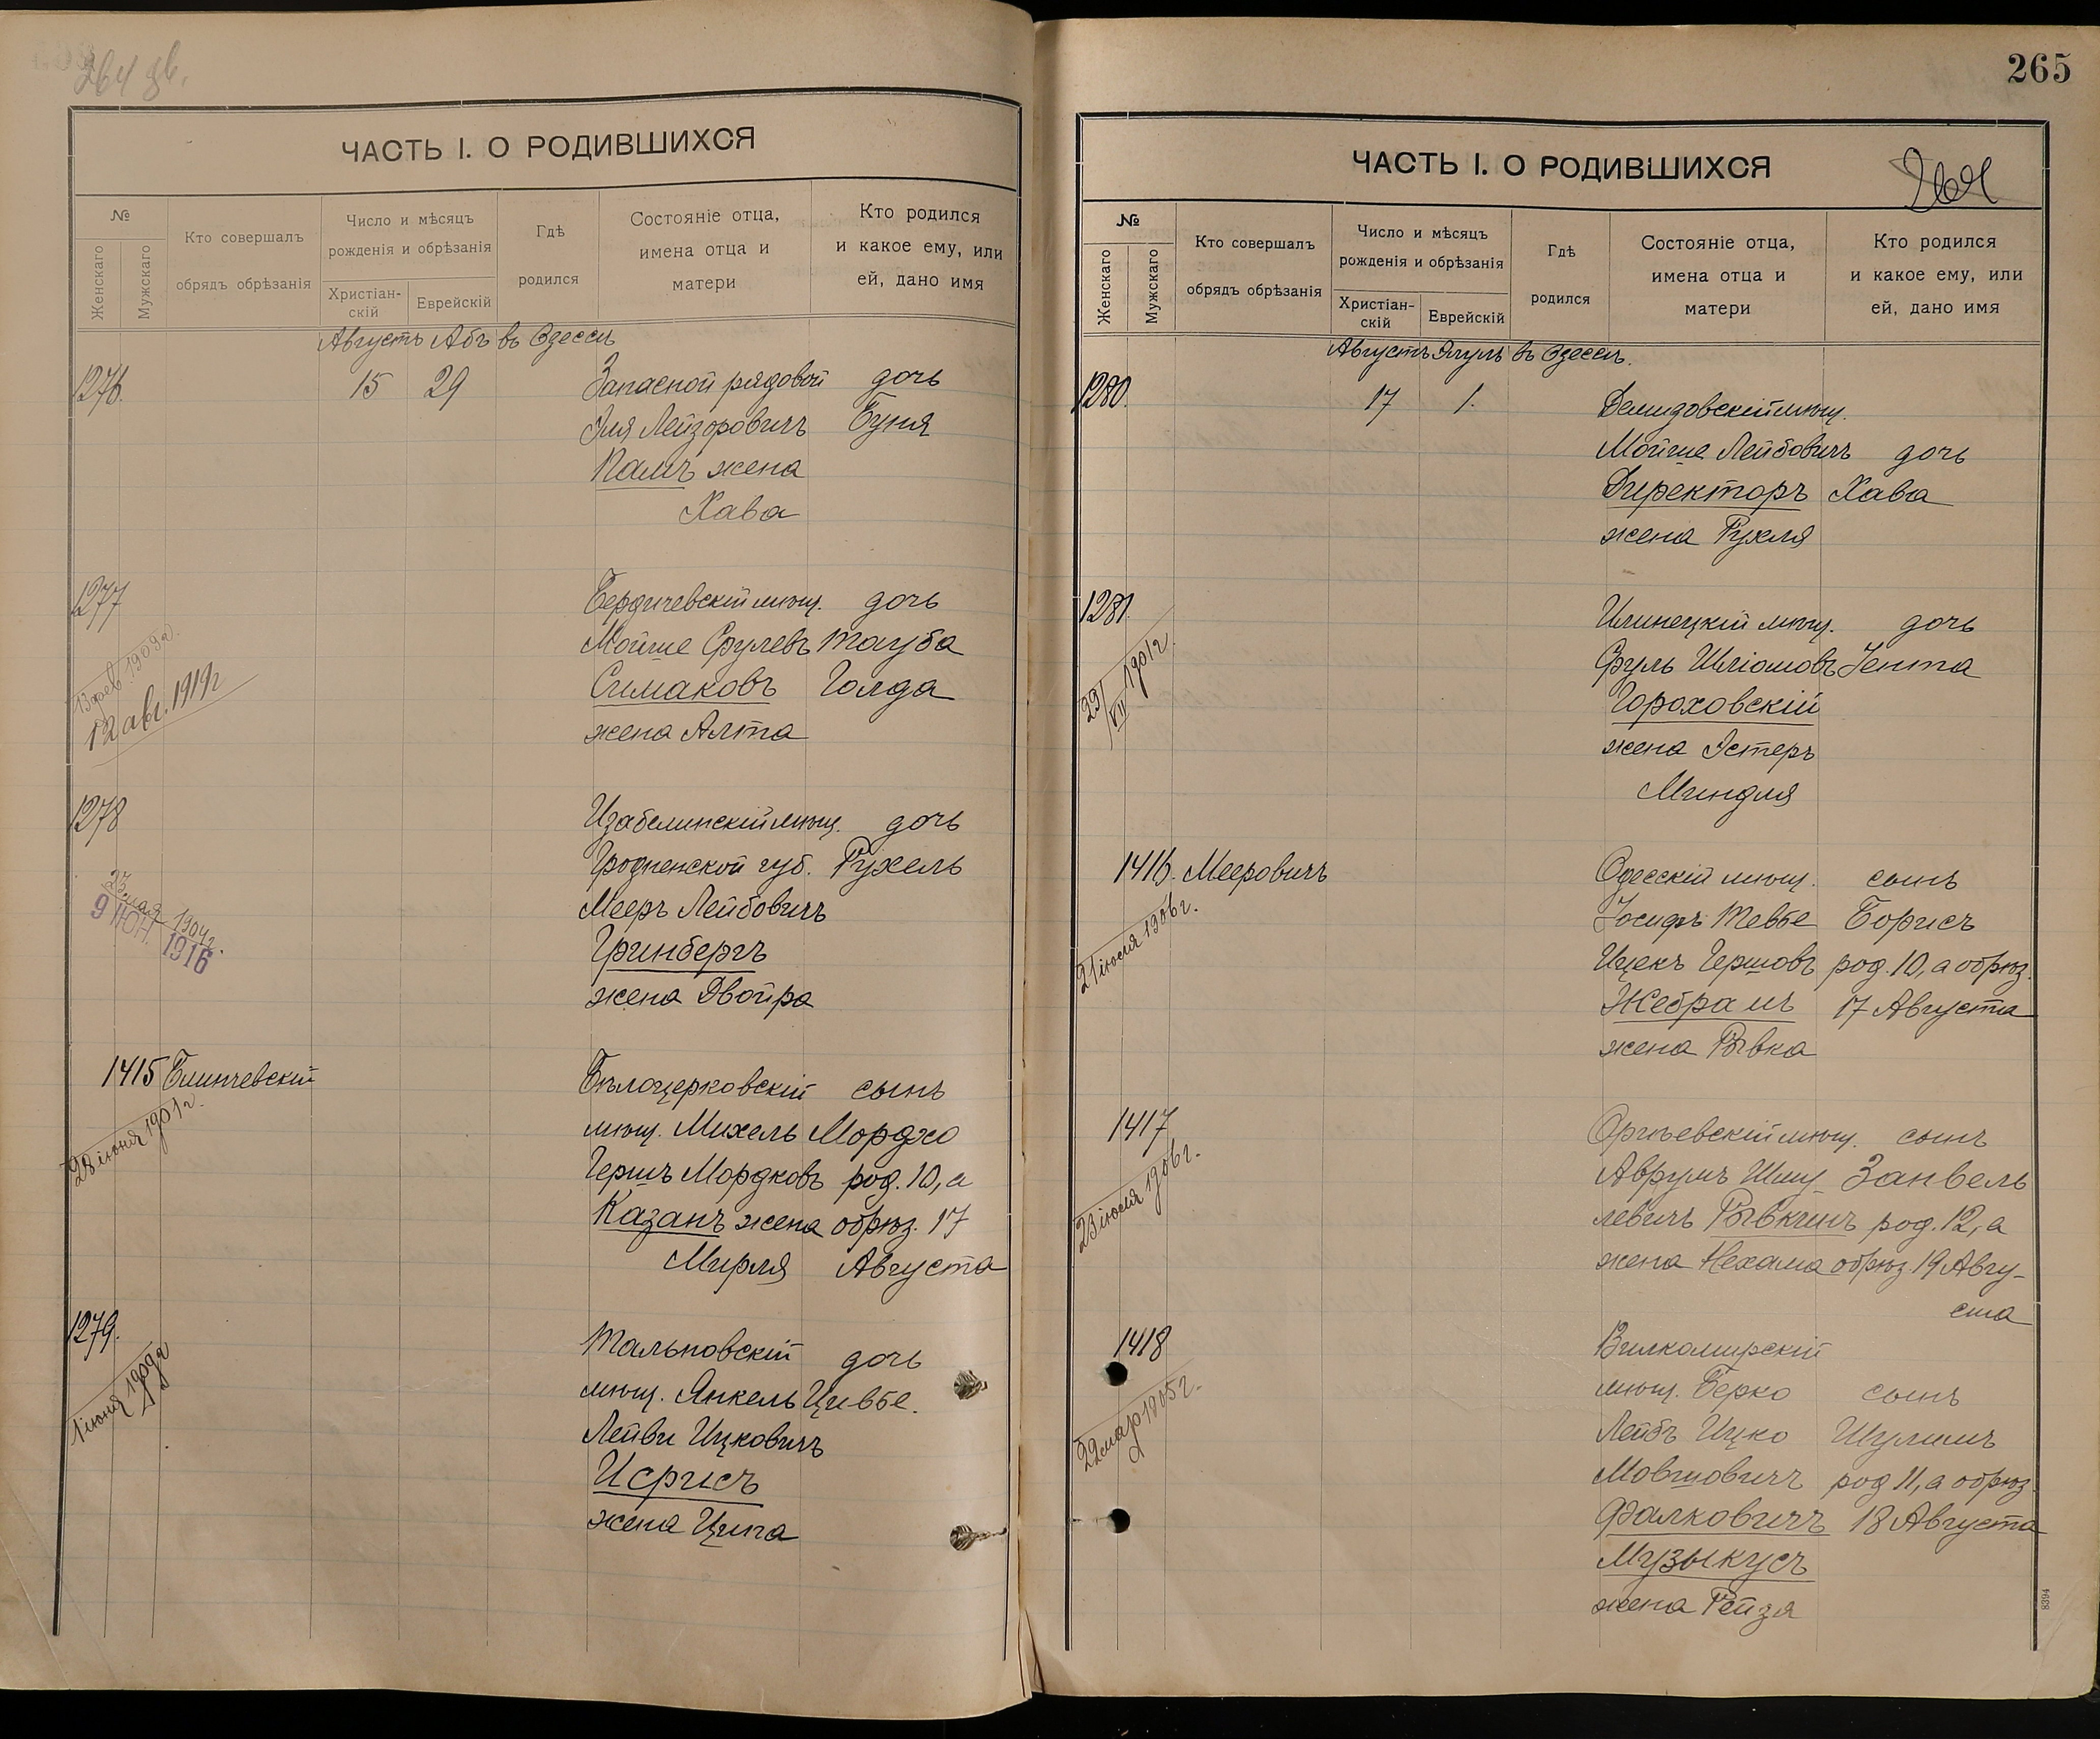 264 об.
ЧАСТЬ I. О РОДИВШИХСЯ
№
Женскаго
Мужскаго
Кто совершалъ
обрядъ обрѣзанія
Число и мѣсяцъ
рожденія и обрѣзанія
Христіан-
скій
Еврейскій
Гдѣ
родился
Состояніе отца,
имена отца и
матери
Кто родился
и какое ему, или
ей, дано имя
Августъ Абъ въ Одессѣ
1276. 15 29 Запасной рядовой дочь
Эля Лейзоровичъ Буня
жена
Хава
1277 Бердичевскій мѣщ. дочь
Мойше Срулевъ Тауба
Симаковъ Голда
жена Алта
13 фев. 1909г.
12 авг. 1919г
1278 Изабелинскій мѣщ. дочь
Гродненской губ. Рухель
Мееръ Лейбовичъ
Гринбергъ
жена Двойра
23 мая 1904г.
9 ИЮН. 1916
1415 Блинчевскій Бѣлоцерковскій сынъ
мѣщ. Михель Мордхо
Гершъ Мордковъ род. 10, а
Казанъ жена обрѣз. 17
Мирля Августа
28 іюня 1901г.
1279. Тальновскій дочь
мѣщ. Янкель Цивье.
Лейви Ицковичъ
Исрисъ
жена Ципа
1 іюня
265
ЧАСТЬ I. О РОДИВШИХСЯ
264
№
Женскаго
Мужскаго
Кто совершалъ
обрядъ обрѣзанія
Число и мѣсяцъ
рожденія и обрѣзанія
Христіан-
скій
Еврейскій
Гдѣ
родился
Состояніе отца,
имена отца и
матери
Кто родился
и какое ему, или
ей, дано имя
Августъ Элулъ въ Одессѣ.
1280. 17 1. Демидовскій мѣщ.
Мойше Лейбовичъ дочь
Директоръ Хава
жена Рухля
1281. Илинецкій мѣщ. дочь
Сруль Шліомовъ Іента
Гороховскій
жена Эстеръ
Миндля
29/VII 1901г.
1416. Мееровичъ Одесскій мѣщ. сынъ
Іосифъ Тевье Борисъ
Ицекъ Гершовъ род. 10, а обрѣз.
17 Августа
жена Рывка
21 іюля 1906г.
1417 Оргѣевскій мѣщ. сынъ
Аврумъ Шму- Занвель
левичъ Рывкинъ род. 12, а
жена Нехама обрѣз. 19 Авгу-
ста
23 іюля 1906г.
1418 Вилкомирскій
мѣщ. Берко сынъ
Лейбъ Ицко Шулимъ
Мовшовичъ род 11, а обрѣз.
Фалковичъ 18 Августа
Музыкусъ
жена Рейзя
22 мар 1905г.
8394